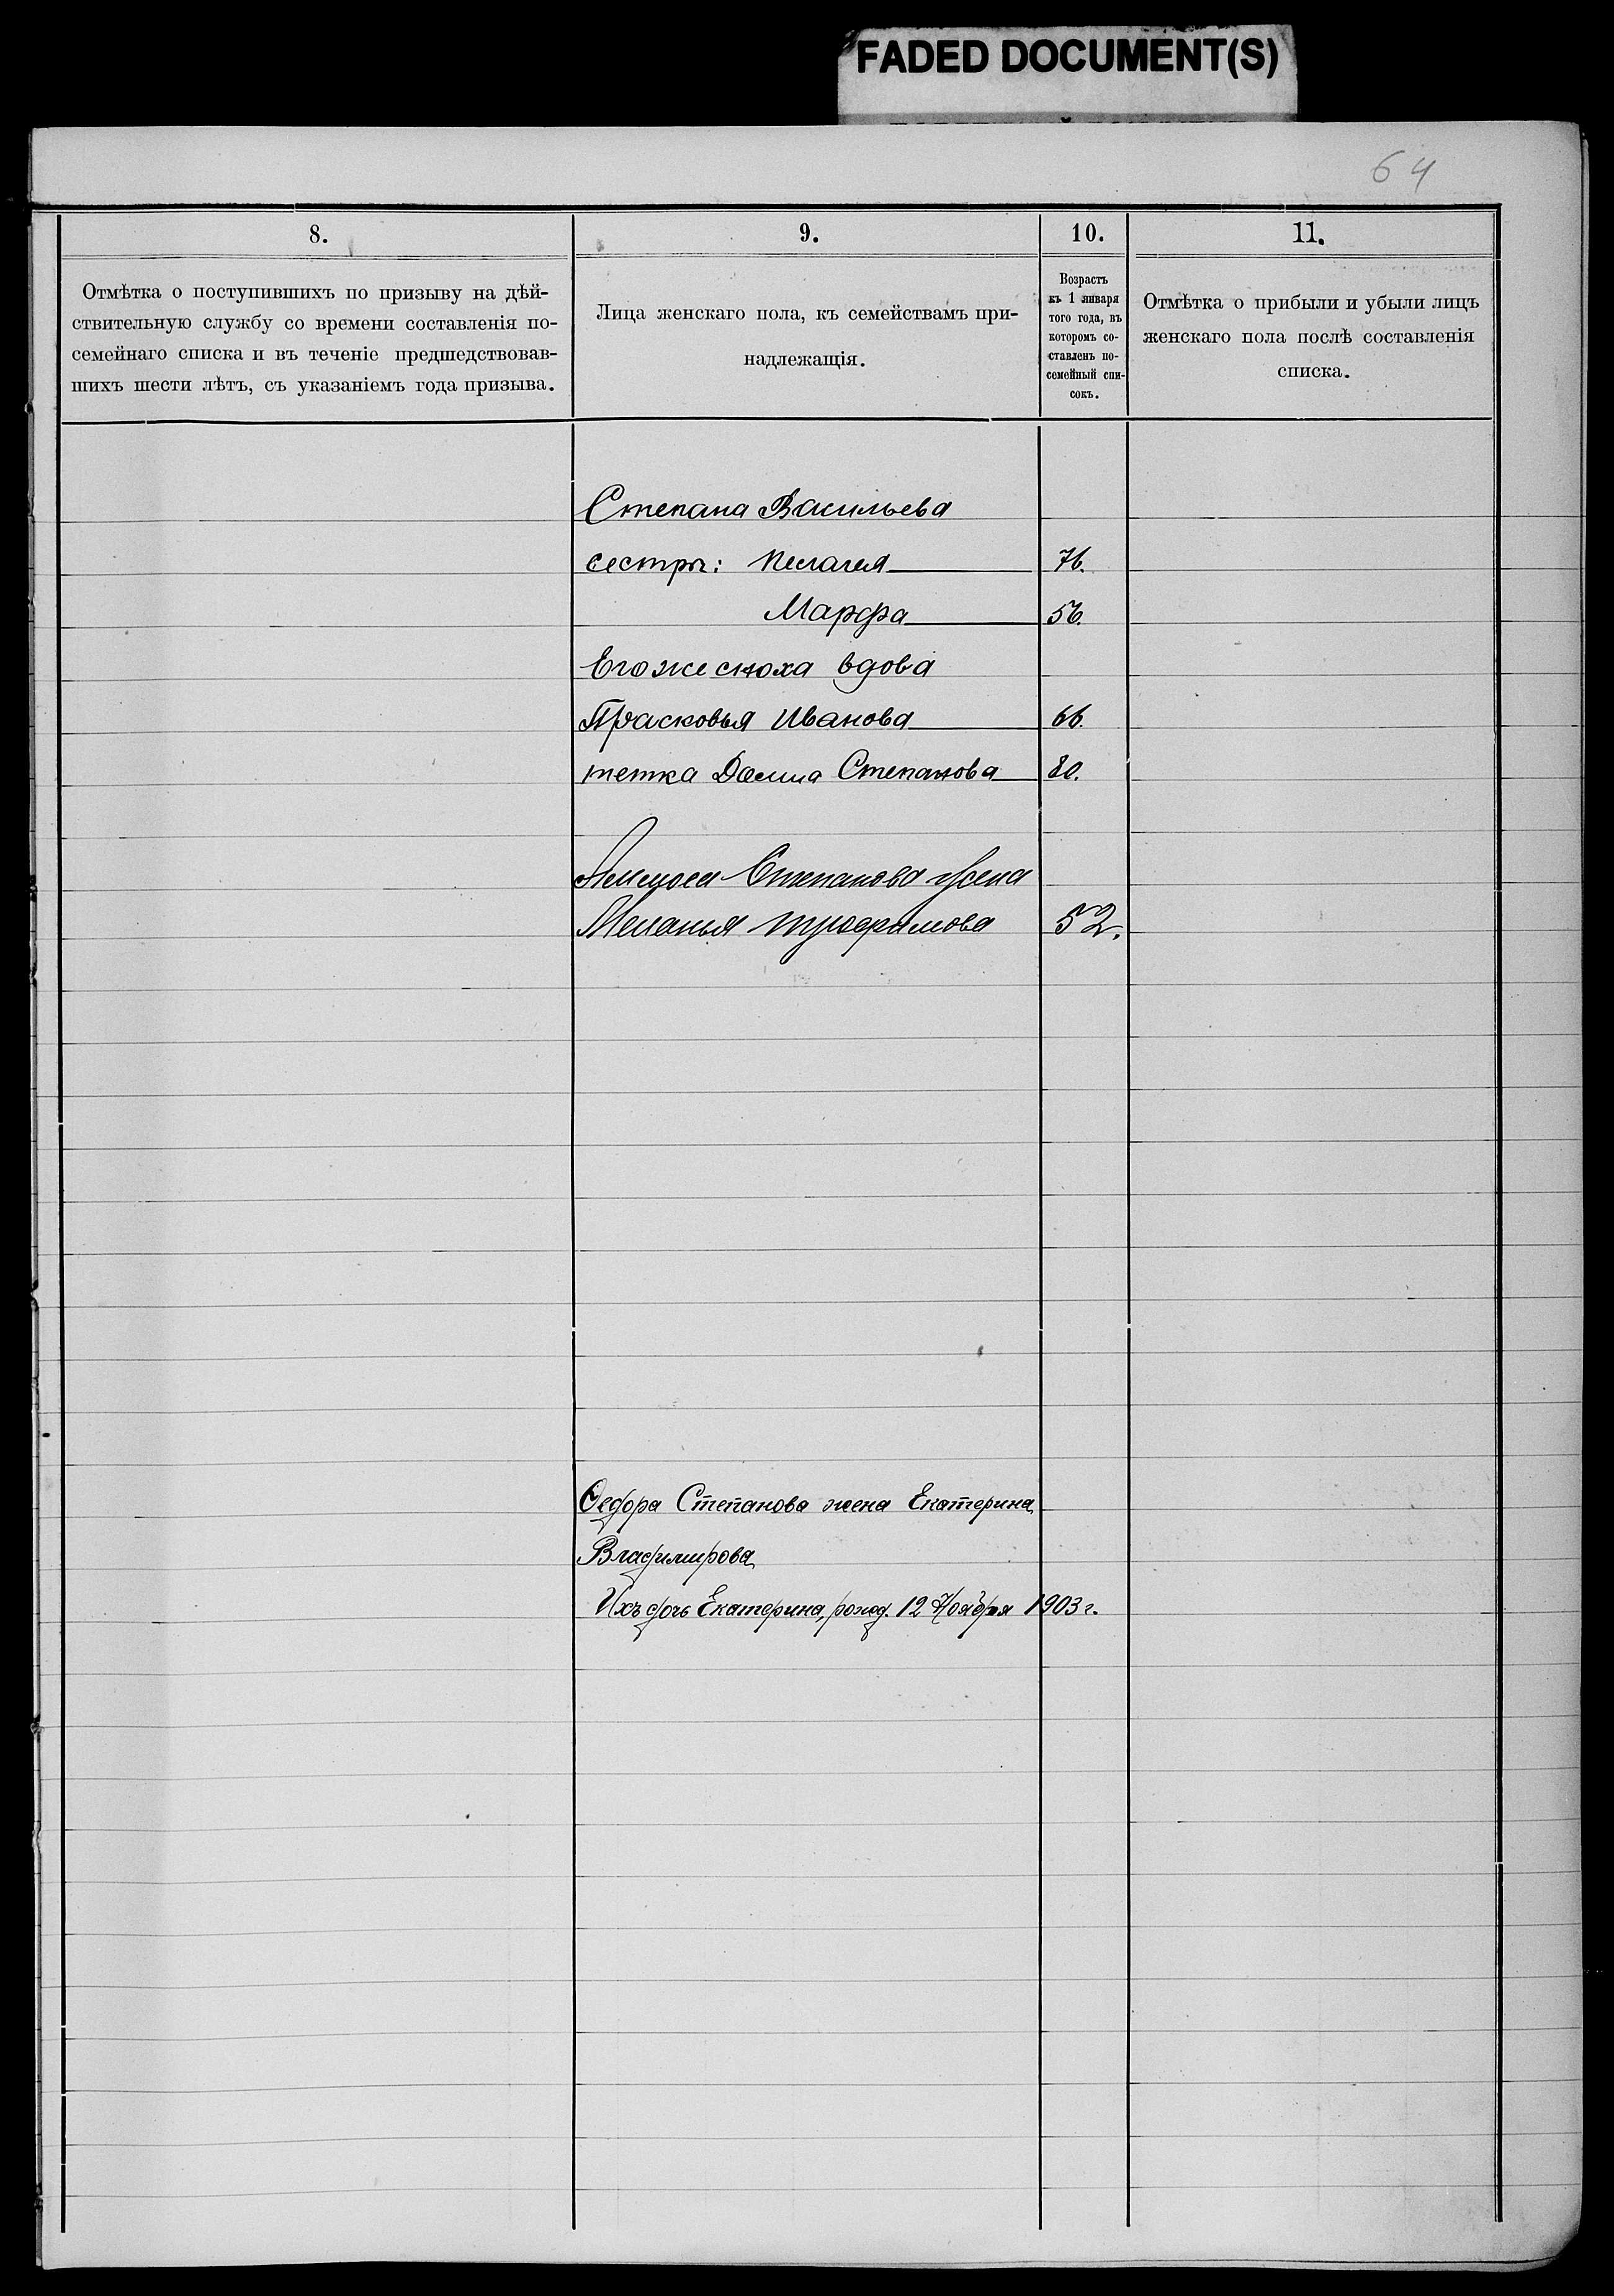 FADED DOCUMENT(S)
64
8.
9.
10.
11.
Отмѣтка о поступившихъ по призыву на дѣй-
ствительную службу со времени составленія по-
семейнаго списка и въ теченіе предшедствовав-
шихъ шести лѣтъ, съ указаніемъ года призыва.
Лица женскаго пола, къ семействамъ при-
надлежащія.
Возрастъ
къ 1 января
того года, въ
которомъ со-
ставленъ по-
семейный спи-
сокъ.
Отмѣтка о прибыли и убыли лицъ
женскаго пола послѣ составленія
списка.
Степана Васильева
сестры: Пелагея 76.
Марфа 56.
Его же сноха вдова
Прасковья Иванова 66.
тетка Домна Степанова 80.
Степанова жена
Меланья Трофимова 52.
Ѳедора Степанова жена Екатерина
Владимирова
Ихъ дочь Екатерина, рожд. 12 Ноября 1903 г.